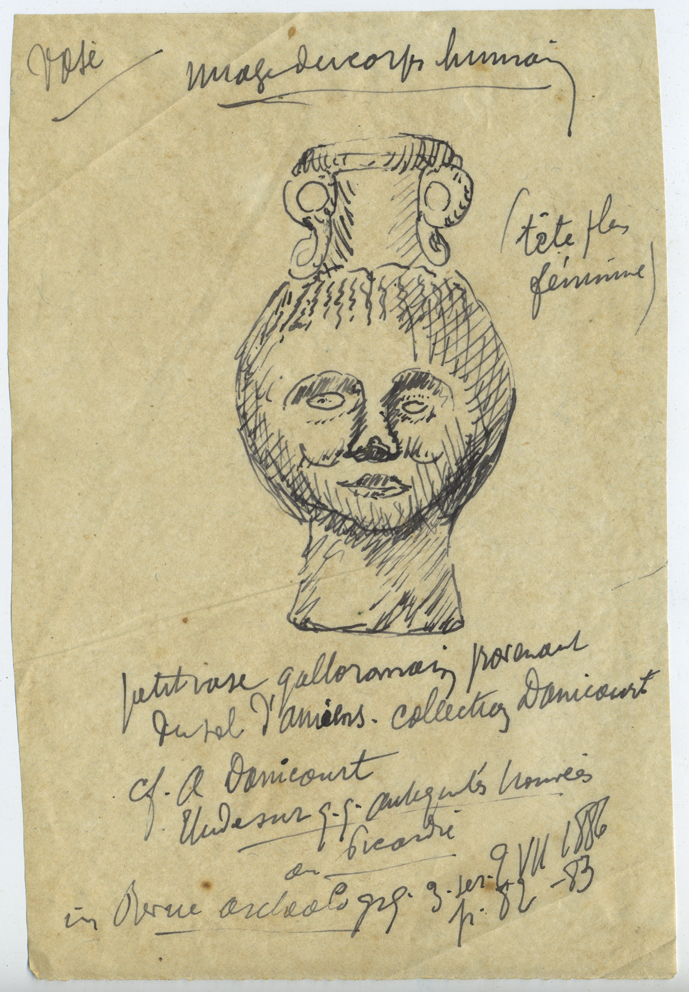 Vase
image du corps humain
(tête
féminine)
petit vase galloromain provenant
du sol d'amiens. collection Danicourt
cf. A Danicourt
Etude sur q.q. antiquités trouvées
en Picardie
in Revue archeolog. 3. ser. VII 1886
p. 82-83